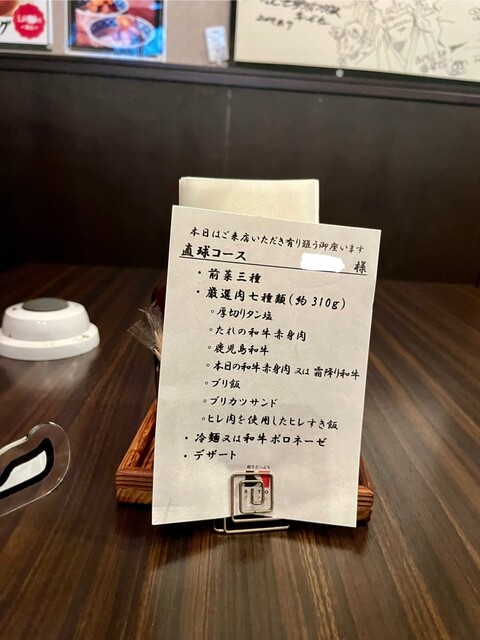 本日はご来店いただき有り難う御座います
直球コース 様
・前菜三種
・厳選肉七種類(約310g)
○厚切りタン塩
○たれの和牛赤身肉
○鹿児島和牛
○本日の和牛赤身肉又は霜降り和牛
○ブリ飯
○ブリカツサンド
○ヒレ肉を使用したヒレすき飯
・冷麺又は和牛ボロネーゼ
・デザート